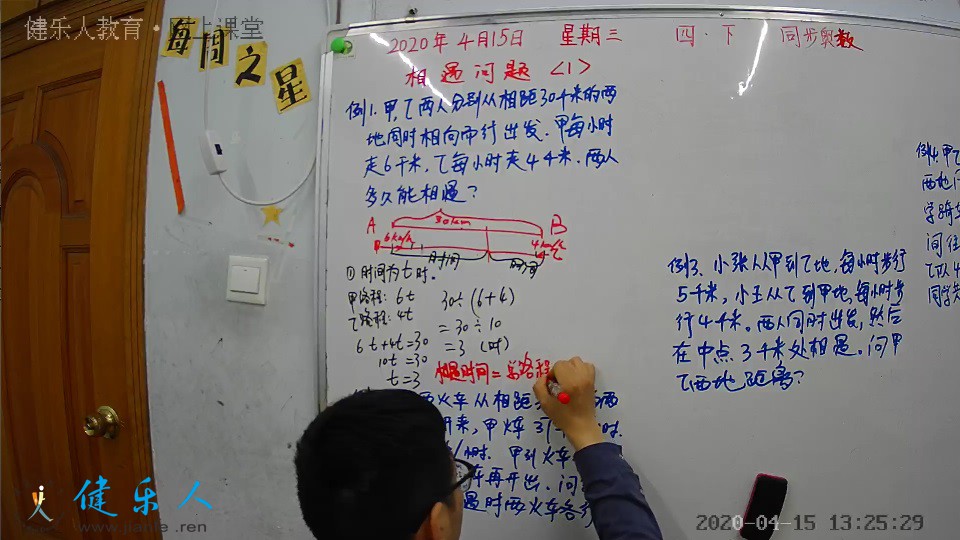 健乐人教育·线上课堂
每周之星
2020年4月15日 星期三 四·下 同步奥数
相遇问题<1>
例1.甲,乙两人分别从相距30千米的两
地同时相向而行出发.甲每小时
走6千米,乙每小时走4千米.两人
多久能相遇?
A 30km B
6km/h 4km/h
甲 乙
①时间为t时.
甲路程: 6t
乙路程: 4t
6t+4t=30
10t=30
t=3
30÷(6+4)
=30÷10
=3 (时)
相遇时间=总路程
火车从相距
来,甲火车
小时. 甲列火车
车再开出.问
遇时两火车各行
例3、小张从甲到乙地,每小时步行
5千米,小王从乙到甲地,每小时步
行4千米。两人同时出发,然后
在中点3千米处相遇。问甲
乙两地距离?
例4.甲乙
两地
学骑车
间往
乙队4
同学
健乐人
www.jianle.ren
2020-04-15 13:25:29